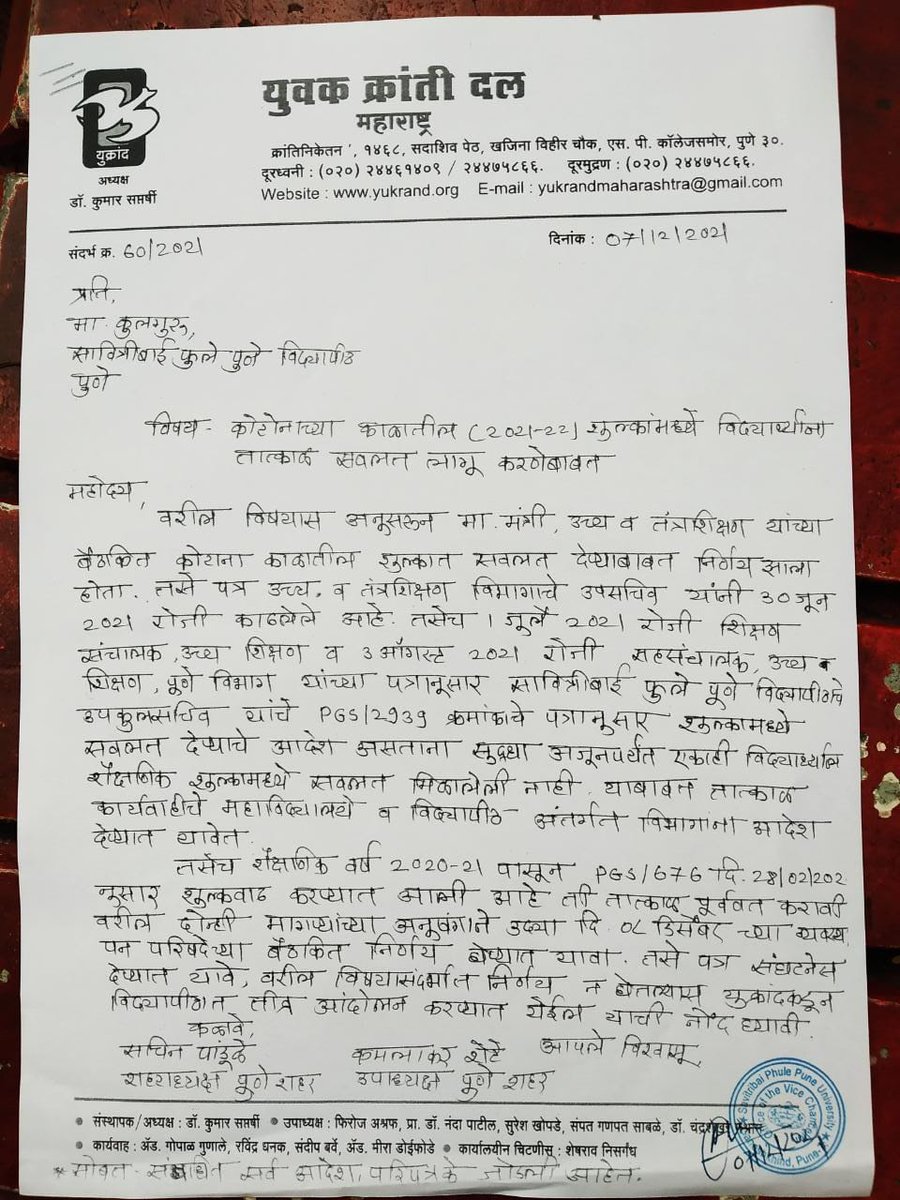 युक्रांद
अध्यक्ष
डॉ. कुमार सप्तर्षी
युवक क्रांती दल
महाराष्ट्र
क्रांतिनिकेतन ', १४६८, सदाशिव पेठ, खजिना विहीर चौक, एस. पी. कॉलेजसमोर, पुणे ३०.
दूरध्वनी : (०२०) २४४६१४०९ / २४४७५८६६. दूरमुद्रण : (०२०) २४४७५८६६.
Website : www.yukrand.org E-mail : yukrandmaharashtra@gmail.com
संदर्भ क्र. 60/2021 दिनांक : 07/12/2021
प्रति,
मा. कुलगुरू,
सावित्रीबाई फुले पुणे विद्यापीठ
पुणे
विषय - कोरोनाच्या काळातील (2021-22) शुल्कांमध्ये विद्यार्थ्यांना
तात्काळ सवलत लागू करणेबाबत
महोदय,
वरील विषयास अनुसरून मा. मंत्री, उच्च व तंत्रशिक्षण यांच्या
बैठकित कोराना काळातील शुल्कात सवलत देण्याबाबत निर्णय झाला
होता. तसे पत्र उच्च. व तंत्रशिक्षण विभागाचे उपसचिव यांनी 30 जून
2021 रोजी काढलेले आहे. तसेच 1 जुलै 2021 रोजी शिक्षण
संचालक, उच्च शिक्षण व 3 ऑगस्ट 2021 रोजी सहसंचालक, उच्च
शिक्षण, पूणे विभाग यांच्या पत्रानुसार सावित्रीबाई फुले पूणे विद्यापीठाचे
उपकुलसचिव यांचे PGS/2939 क्रमांकाचे पत्रानुसार शुल्कामध्ये
सवलत देण्याचे आदेश असताना सुद्धा अजूनपर्यंत एकाही विद्यार्थ्याला
शैक्षणिक शुल्कामध्ये सवलत मिळालेली नाही. याबाबत तात्काळ
कार्यवाहीचे महाविद्यालये व विद्यापीठ अंतर्गत विभागांना आदेश
देण्यात यावेत.
तसेच शैक्षणिक वर्ष 2020-21 पासून PGS/676 दि. 28/02/202
नुसार शुल्कवाढ करण्यात आली आहे ती तात्काळ पूर्ववत करावी
वरील दोन्ही मागण्यांच्या अनुषंगाने उद्या दि. 08 डिसेंबर च्या व्यवस्था
पन परिषदेच्या बैठकित निर्णय घेण्यात यावा. तसे पत्र संघटनेस
देण्यात यावे, वरील विषयासंदर्भात निर्णय न घेतल्यास युक्रांदकडून
विद्यापीठात तीव्र आंदोलन करण्यात येईल याची नोंद घ्यावी
कळावे,
आपले विश्वासू
सचिन पांडुळे कमलाकर शेटे
शहराध्यक्ष पूणे शहर उपाध्यक्ष पूणे शहर
• संस्थापक/अध्यक्ष : डॉ. कुमार सप्तर्षी • उपाध्यक्ष : फिरोज अश्रफ, प्रा. डॉ. नंदा पाटील, सुरेश खोपडे, संपत गणपत साबळे, डॉ.
• कार्यवाह : ॲड. गोपाळ गुणाले, रविंद्र धनक, संदीप बर्वे, ॲड. मीरा डोईफोडे • कार्यालयीन चिटणीस : शेषराव निसर्गंध
* सोबत - संबंधित सर्व आदेश, परिपत्रके जोडली आहेत.
Savitribai Phule Pune University
Office of the Vice
07/12/2021